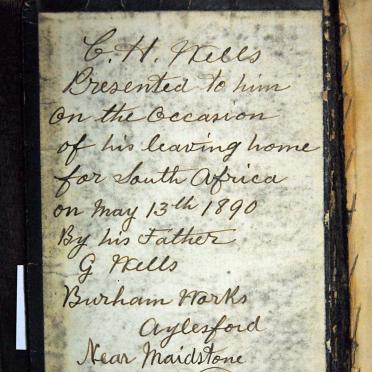 C. H. Wells
Presented to him
On the Occasion
of his leaving home
for South Africa
on May 13th 1890
By his Father
G Wells
Burham Works
Aylesford
Near Maidstone